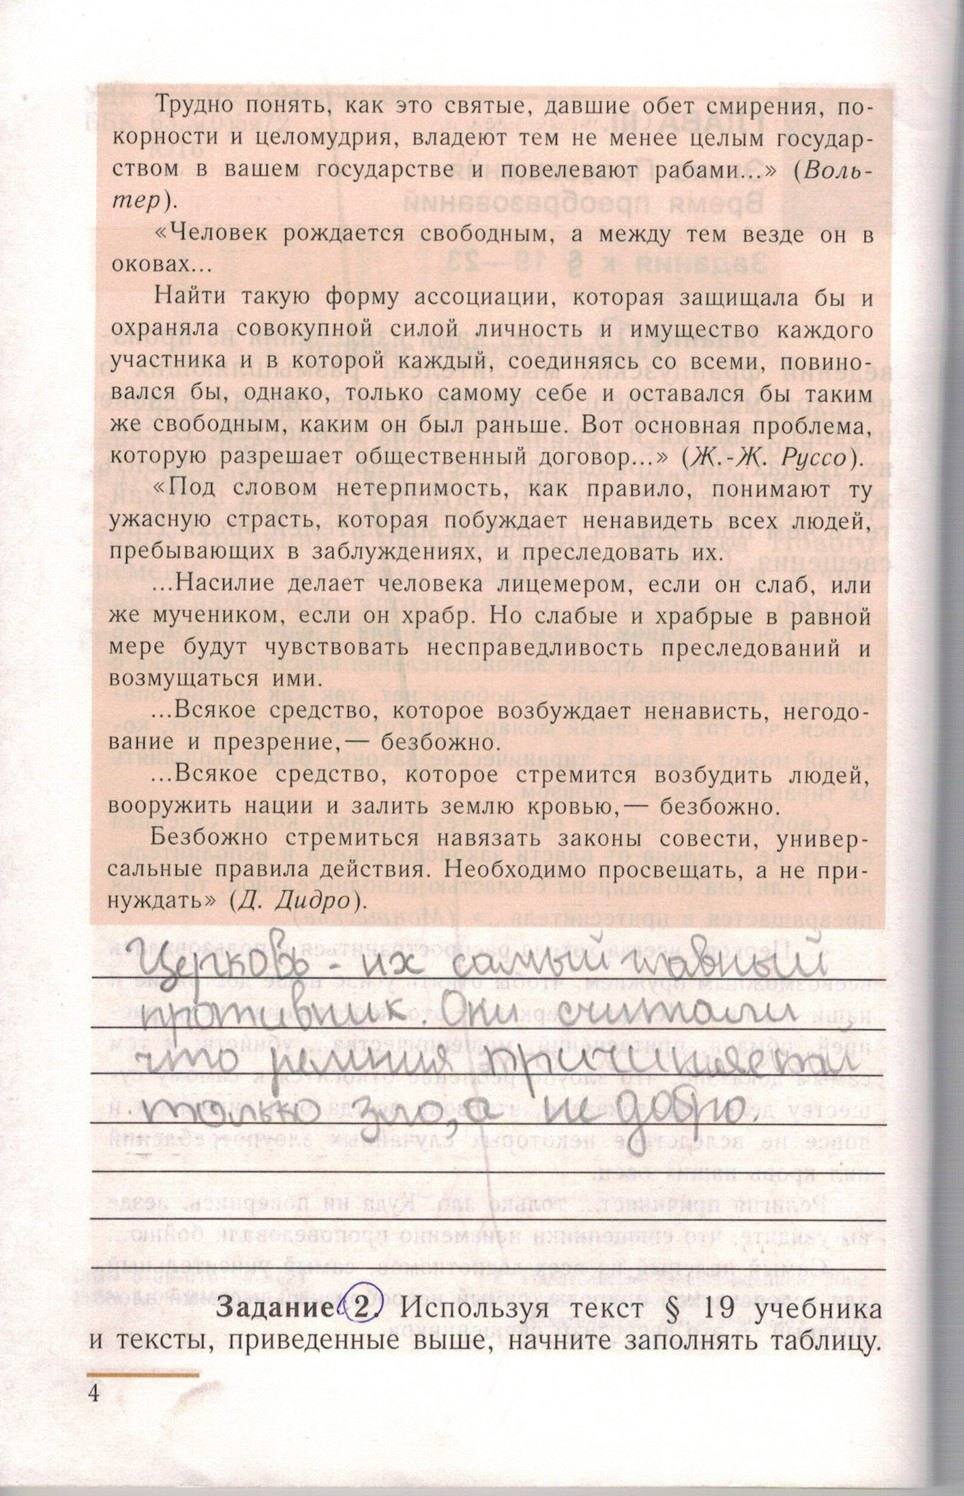 Трудно понять, как это святые, давшие обет смирения, по-
корности и целомудрия, владеют тем не менее целым государ-
ством в вашем государстве и повелевают рабами...» (Воль-
тер).
«Человек рождается свободным, а между тем везде он в
оковах...
Найти такую форму ассоциации, которая защищала бы и
охраняла совокупной силой личность и имущество каждого
участника и в которой каждый, соединяясь со всеми, повино-
вался бы, однако, только самому себе и оставался бы таким
же свободным, каким он был раньше. Вот основная проблема,
которую разрешает общественный договор...» (Ж.-Ж. Руссо).
«Под словом нетерпимость, как правило, понимают ту
ужасную страсть, которая побуждает ненавидеть всех людей,
пребывающих в заблуждениях, и преследовать их.
...Насилие делает человека лицемером, если он слаб, или
же мучеником, если он храбр. Но слабые и храбрые в равной
мере будут чувствовать несправедливость преследований и
возмущаться ими.
...Всякое средство, которое возбуждает ненависть, негодо-
вание и презрение,— безбожно.
...Всякое средство, которое стремится возбудить людей,
вооружить нации и залить землю кровью,— безбожно.
Безбожно стремиться навязать законы совести, универ-
сальные правила действия. Необходимо просвещать, а не при-
нуждать» (Д. Дидро).
Церковь - их самый главный
противник. Они считали
что религия
только зло, а не добро.
Задание 2. Используя текст § 19 учебника
и тексты, приведенные выше, начните заполнять таблицу.
4